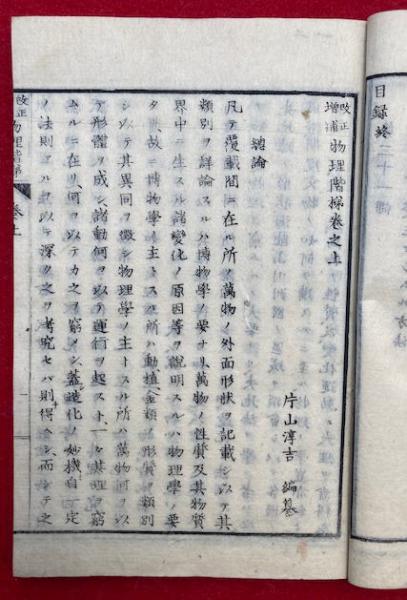 目録終
改正増補物理階梯巻之上
片山淳吉 編纂
總論
凡テ覆載間ニ在ル所ノ萬物ノ外面形状ヲ記載シ以テ其
類別ヲ詳論スルハ博物學ノ要ナリ萬物ノ性質及其物質
界中ニ生スル諸變化ノ原因等ヲ説明スルハ物理學ノ要
タリ故ニ博物學ノ主トスル所ハ動植金類ノ形質ヲ類別
シ以テ其異同ヲ徴シ物理學ノ主トスル所ハ萬物何ヲ以
テ形體ヲ成シ諸動何ヲ以テ運行ヲ起スト一々其理ヲ窮
ムルニ在リ何ヲ以テカ之ヲ窮メン蓋造化ノ妙機自一定
ノ法則アルヲ以テ深ク之ヲ考究セバ則得ヘシ而シテ之
改正物理階梯 巻上